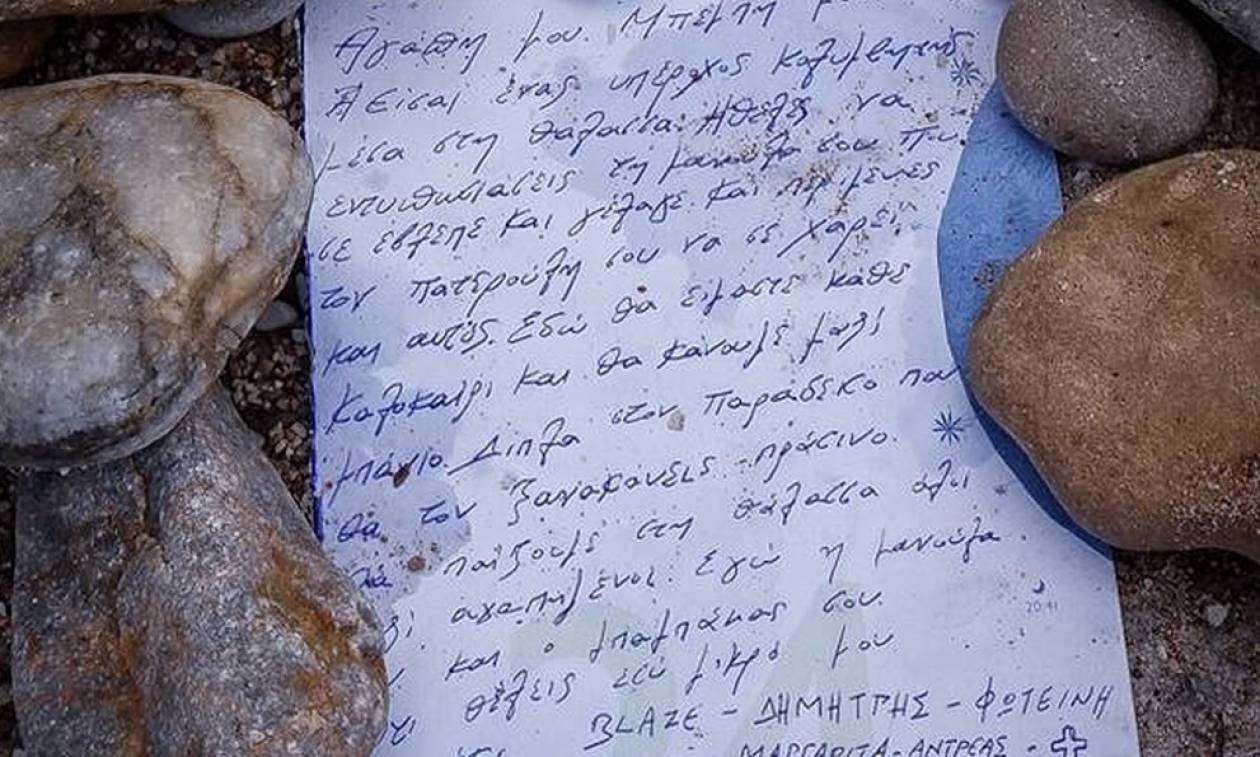 Αγάπη μου. Μπέμπη μ
Είσαι ένας υπέροχος κολυμβητής
μέσα στη θάλασσα. Ήθελες να
εντυπωσιάσεις τη μανούλα σου που
σε έβλεπε και γέλαγε. και περίμενες
τον πατερούλη σου να σε χαρεί
και αυτός. Εδώ θα είμαστε κάθε
καλοκαίρι και θα κάνουμε μαζί
μπάνιο. Δίπλα στον Παράδεισο που
θα τον ξανακάνεις πράσινο.
θα παίξουμε στη θάλασσα όλοι
αγαπημένοι. Εγώ η μανούλα
και ο μπαμπάκας σου.
θέλεις εσύ μικρό μου
BLAZE - ΔΗΜΗΤΡΗΣ - ΦΩΤΕΙΝΗ
ΜΑΡΓΑΡΙΤΑ - ΑΝΤΡΕΑΣ -
20:41